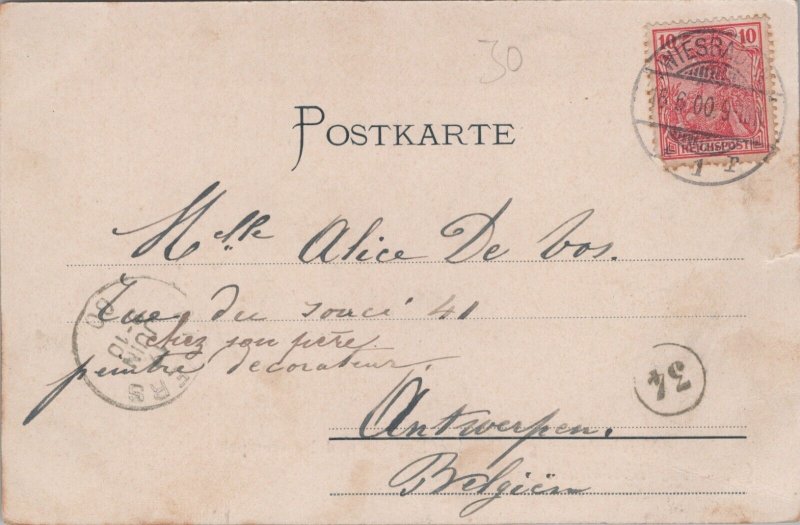 30
10 10
WIESBA
6.00.9
REICHSPOST
1
POSTKARTE
Melle Alice De Vos.
rue du souci 41
chez son père
peintre décorateur.
Antwerpen.
Belgiën
JUIN
00
34